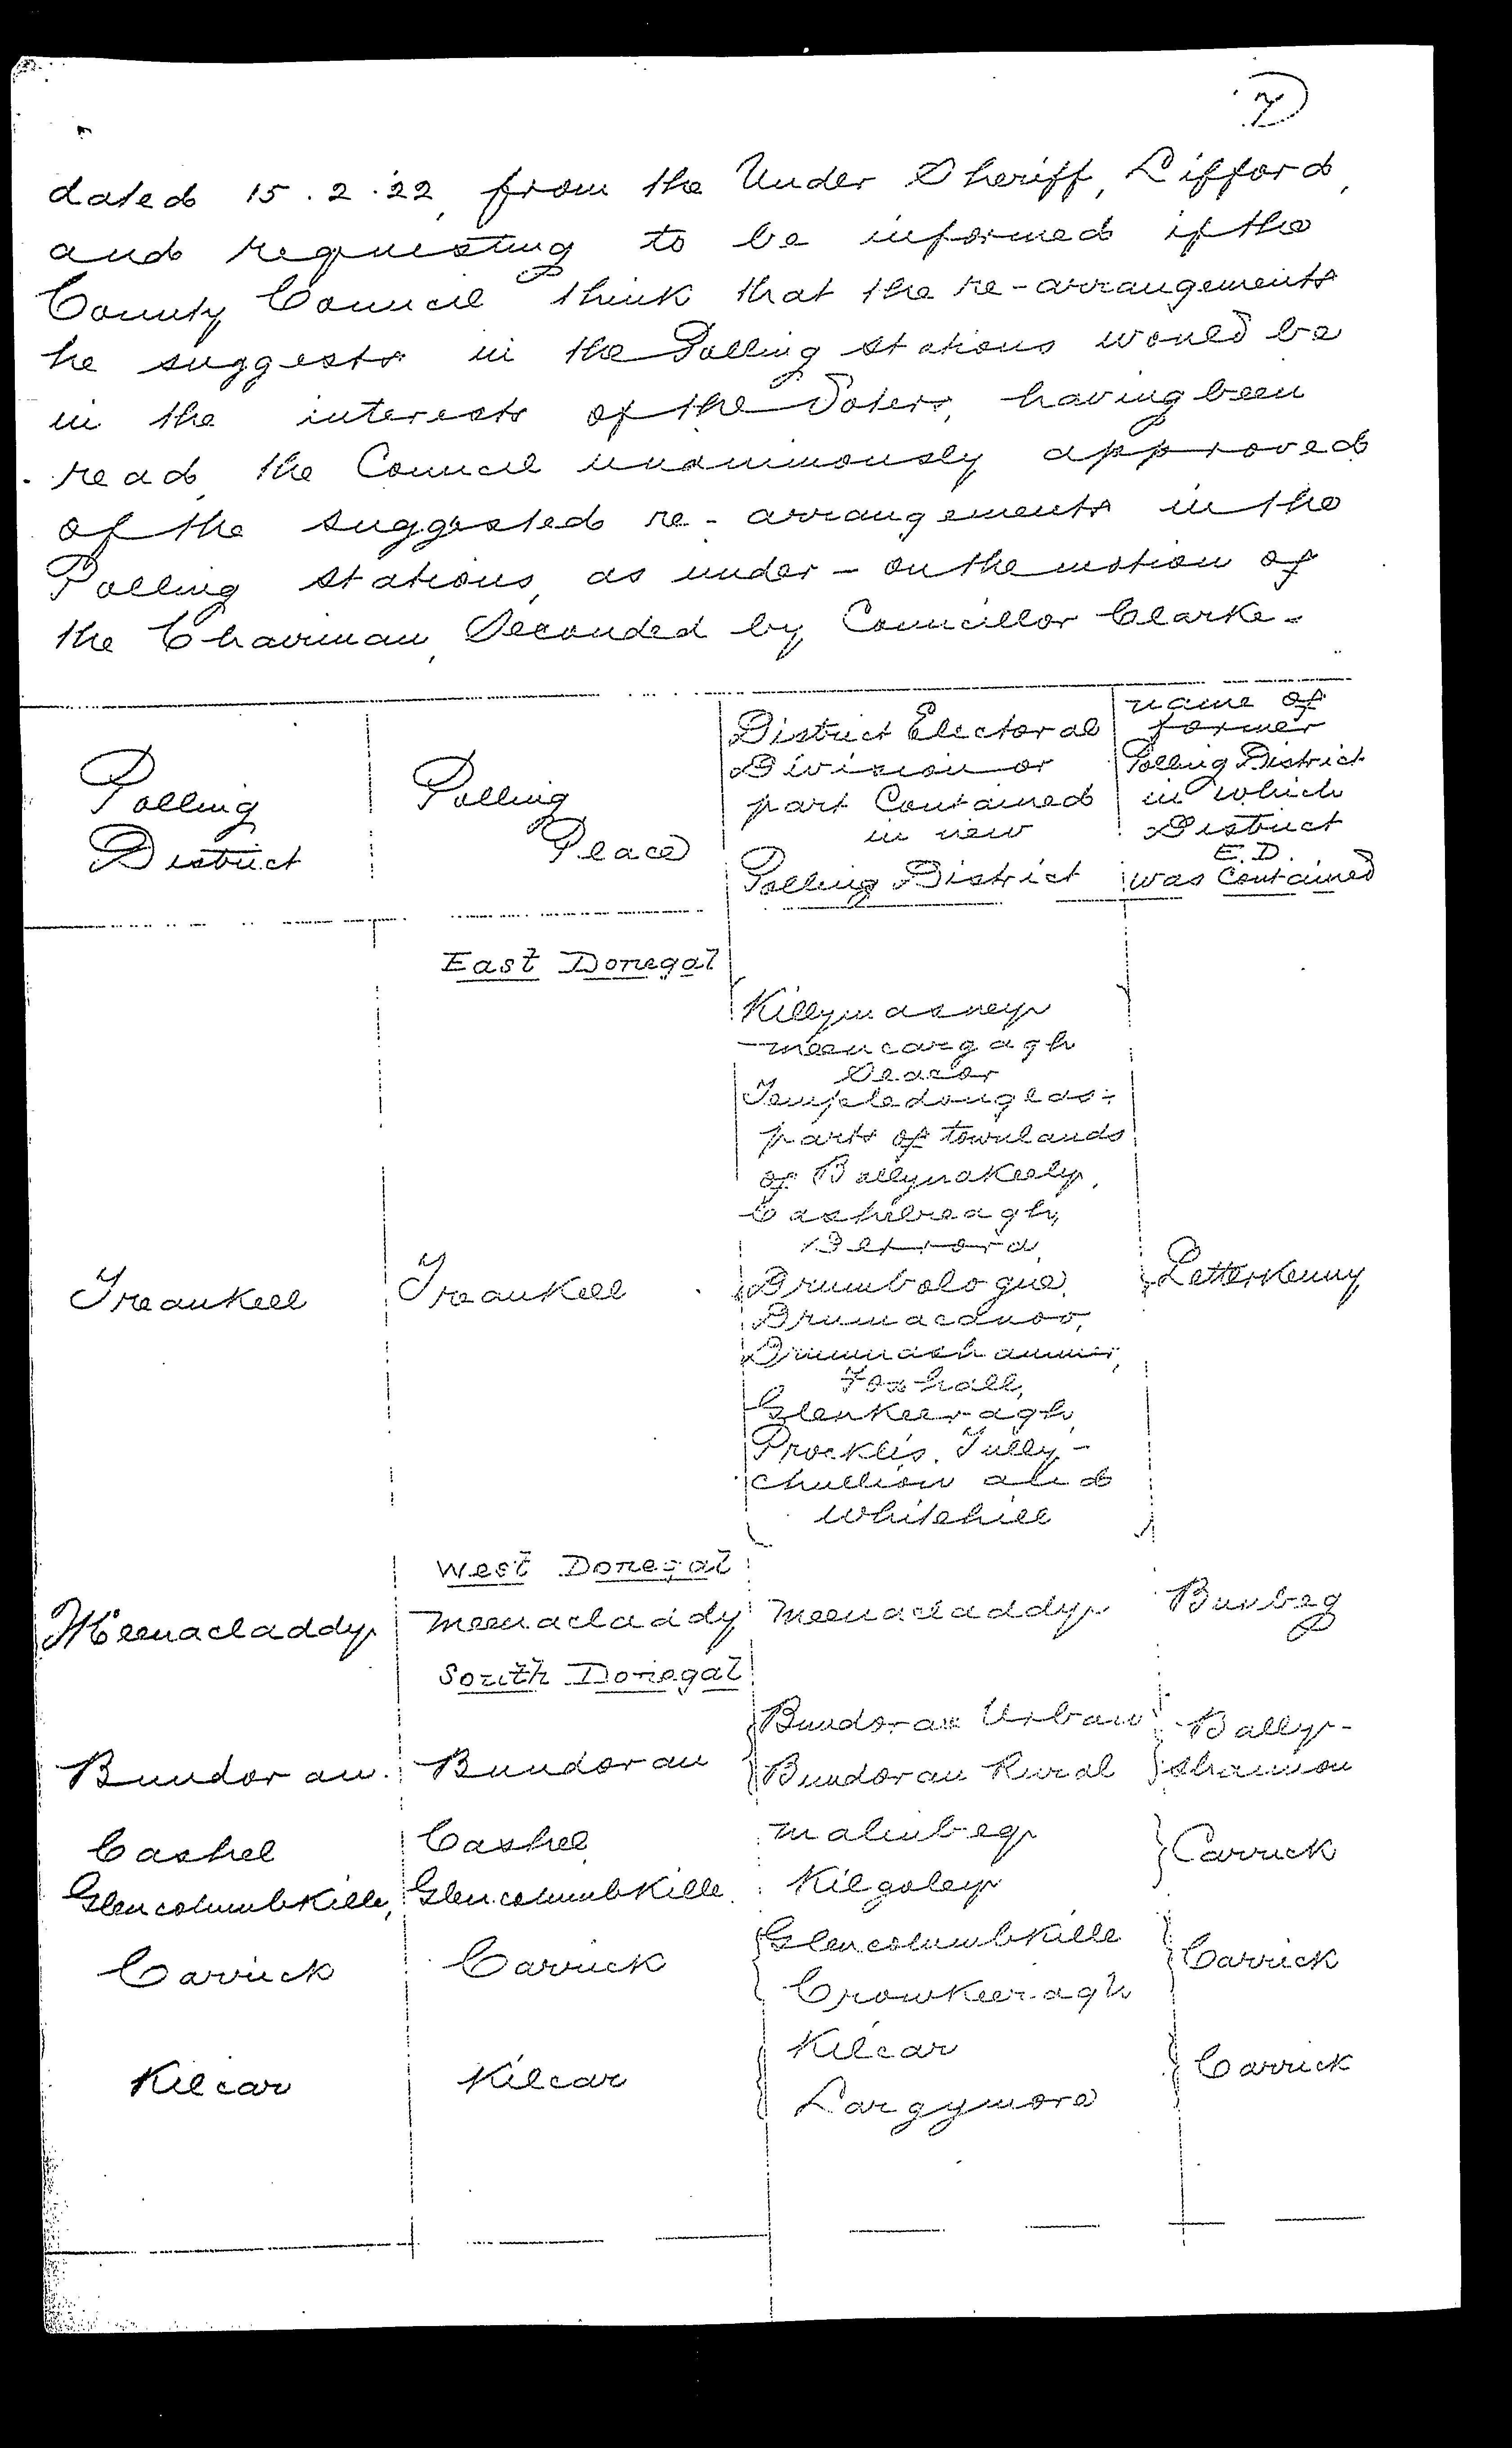 7
dated 15.2.'22, from the Under Sheriff, Lifford,
and requesting to be informed if the
County Council think that the re-arrangements
he suggests in the Polling stations would be
in the interests of the Voters, having been
read, the Council unanimously approved
of the suggested re-arrangements in the
Polling stations, as under - on the motion of
the Chairman, Seconded by Councillor Clarke.
Polling District
Polling Place
District Electoral
Division or
part Contained
in new
Polling District
name of
former
Polling District
in which
District
E.D.
was Contained
East Donegal
Killymasney
Meencargagh
Seacor
Templedouglas:
parts of townlands
of Ballynakeely,
Cashelreagh,
Drumbologue,
Drumacanoo,
Drumnashammer,
Foxhall,
Glenkeeragh,
Procklis, Tully-
chullion and
Whitehill
Treankeel Treankeel Letterkenny
West Donegal
Meenacladdy Meenacladdy Meenacladdy Bunbeg
South Donegal
Bundoran Urban Bally-
Bundoran Bundoran Bundoran Rural shannon
Cashel Cashel Malinbeg Carrick
Glencolumbkille, Glencolumbkille Kilgoley
Glencolumbkille
Carrick Carrick Carrick
Crowkeeragh
Kilcar
Kilcar Kilcar Carrick
Largymore